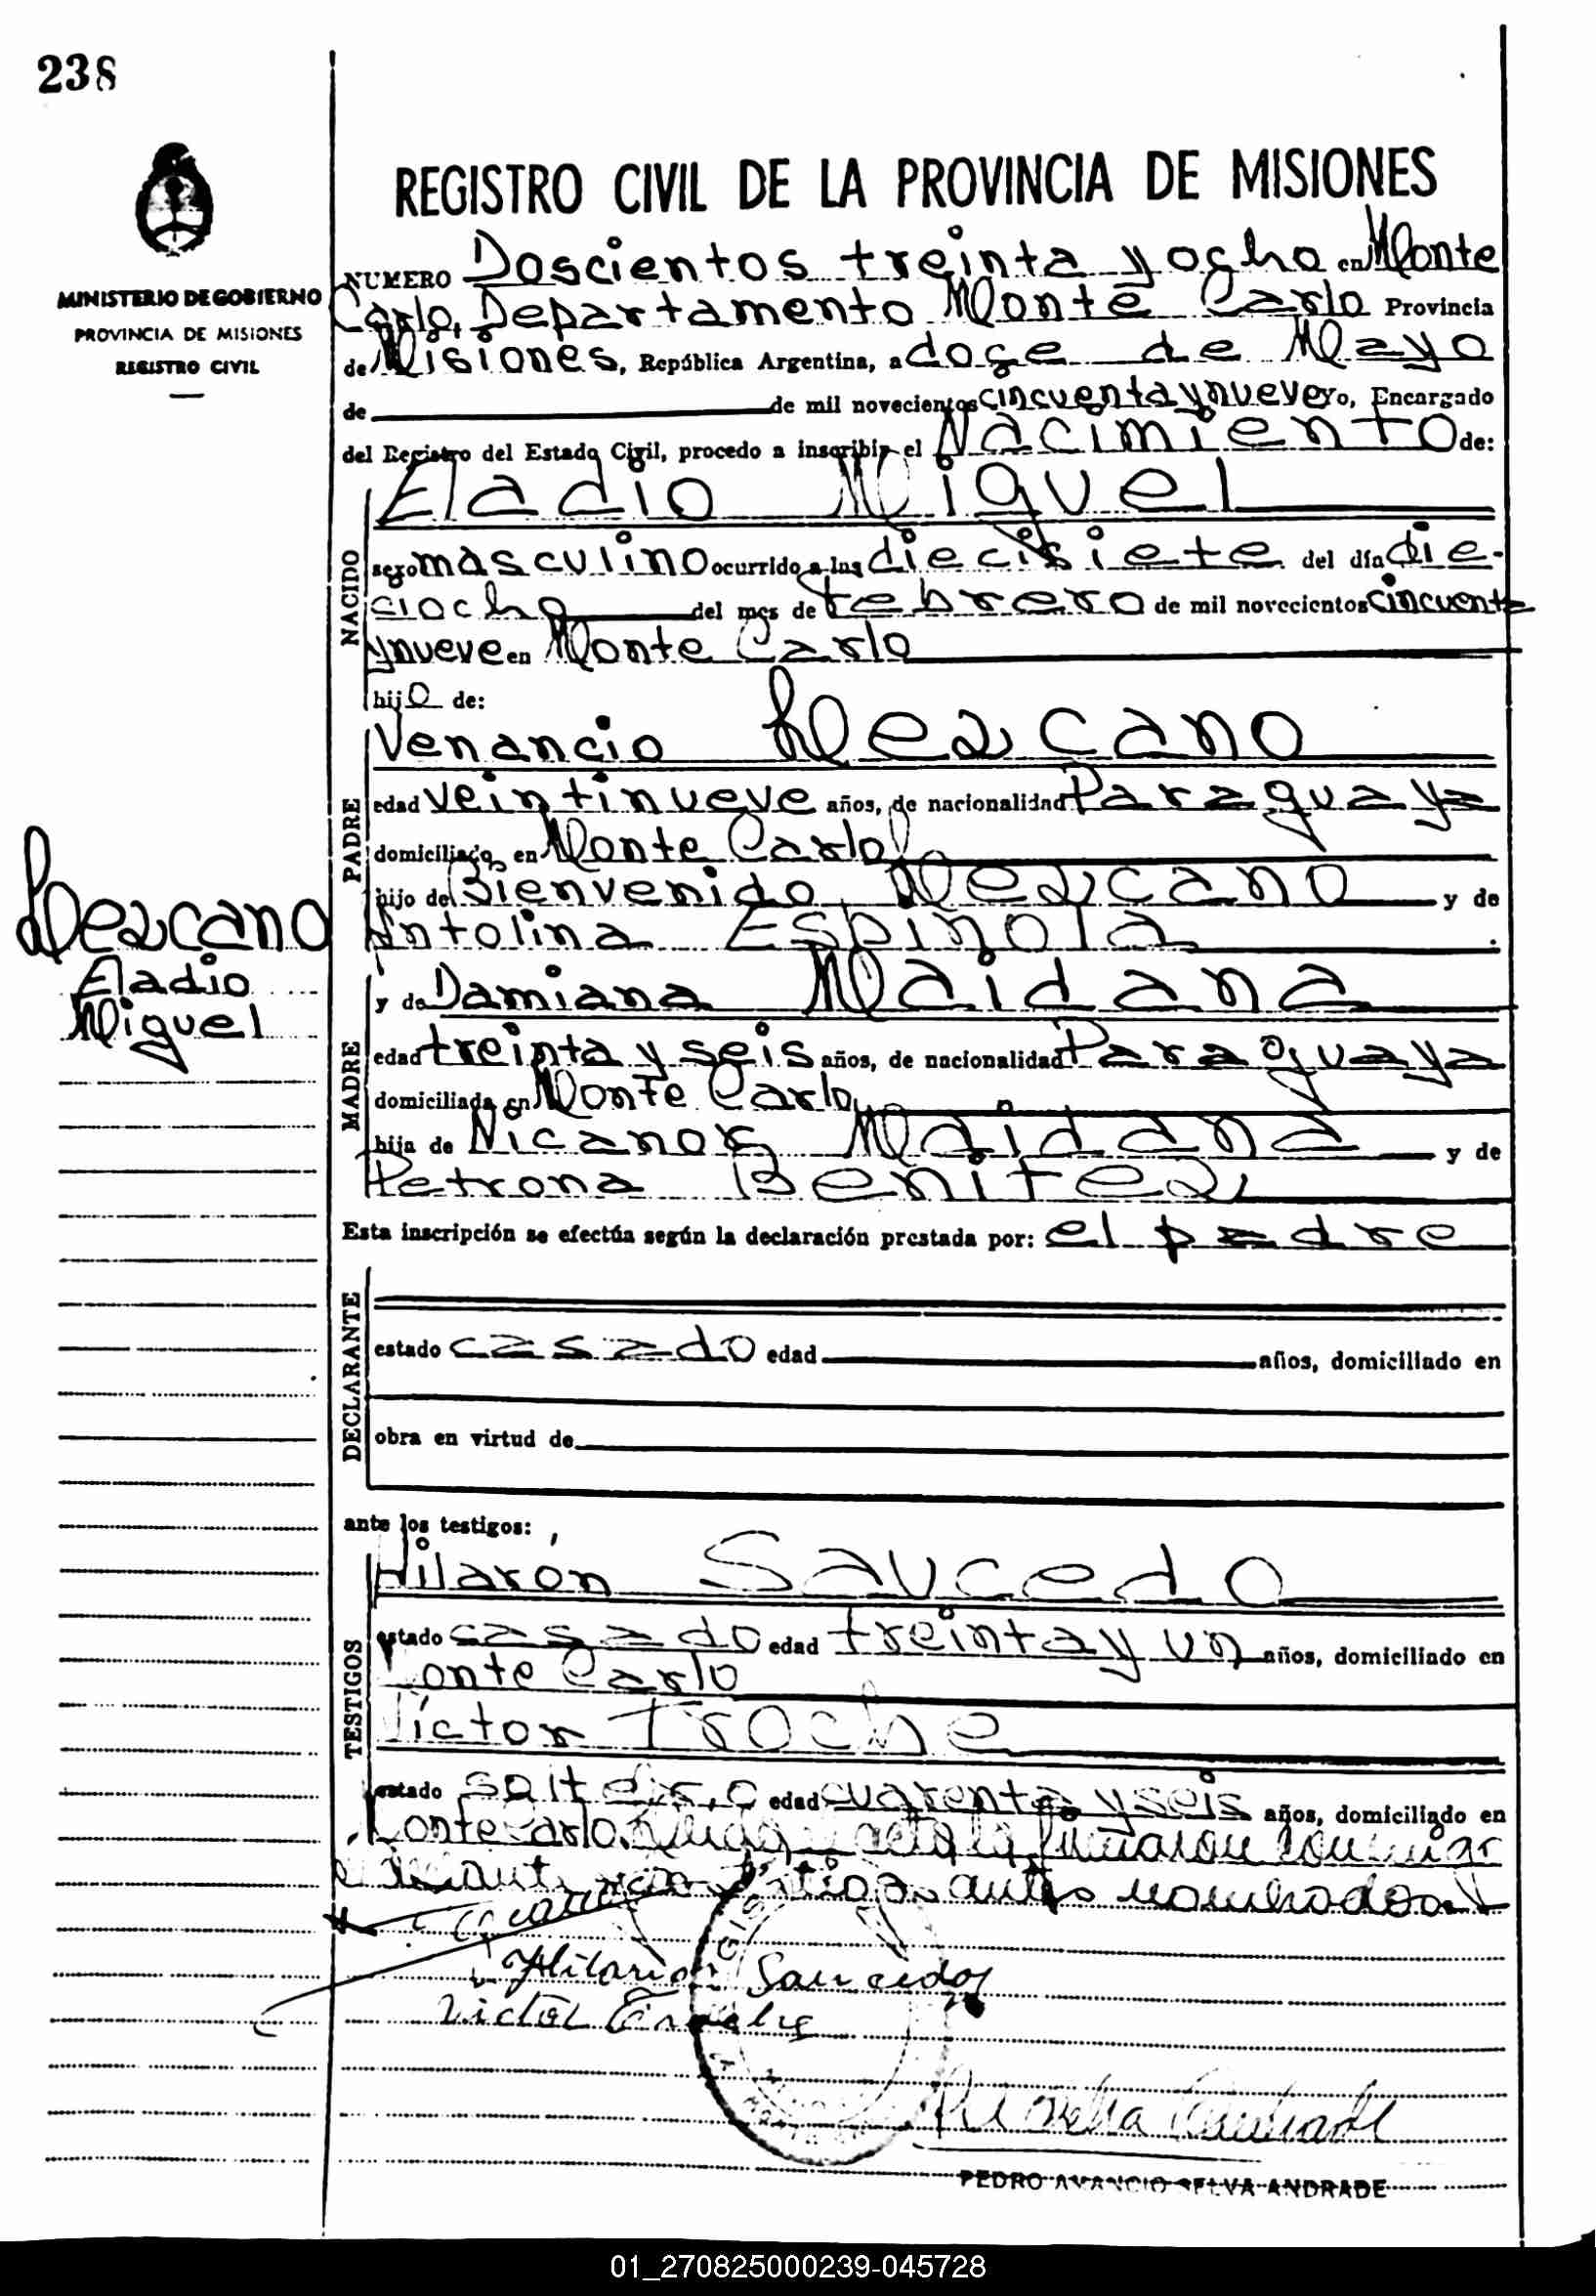 238
MINISTERIO DE GOBIERNO
PROVINCIA DE MISIONES
REGISTRO CIVIL
REGISTRO CIVIL DE LA PROVINCIA DE MISIONES
NUMERO Doscientos treinta y ocho en Monte
Carlo, Departamento Monte Carlo Provincia
de Misiones, República Argentina, a doce de Mayo
de de mil novecientos cincuenta y nueve yo, Encargado
del Registro del Estado Civil, procedo a inscribir el Nacimiento de:
NACIDO
Eladio Miguel
sexo masculino ocurrido a las diecisiete del día die-
ciocho del mes de febrero de mil novecientos cincuenta
y nueve en Monte Carlo
hijo de:
PADRE
Venancio Lezcano
edad veintinueve años, de nacionalidad Paraguaya
domiciliado en Monte Carlo
hijo de Bienvenido Lezcano y de
Antolina Espinola
Lezcano
Eladio
Miguel
MADRE
y de Damiana Maidana
edad treinta y seis años, de nacionalidad Paraguaya
domiciliada en Monte Carlo
hija de Nicanor Maidana y de
Petrona Benitez
Esta inscripción se efectúa según la declaración prestada por: el padre
DECLARANTE
estado casado edad años, domiciliado en
obra en virtud de
ante los testigos:
TESTIGOS
Hilarón Saucedo
estado casado edad treinta y un años, domiciliado en
Monte Carlo
Víctor Troche
estado soltero edad cuarenta y seis años, domiciliado en
Monte Carlo. acta la firmaron conmigo
testigos antes nombrados
Hilarion Saucedo
Victor Troche
PEDRO AMANCIO SELVA ANDRADE
01_270825000239-045728